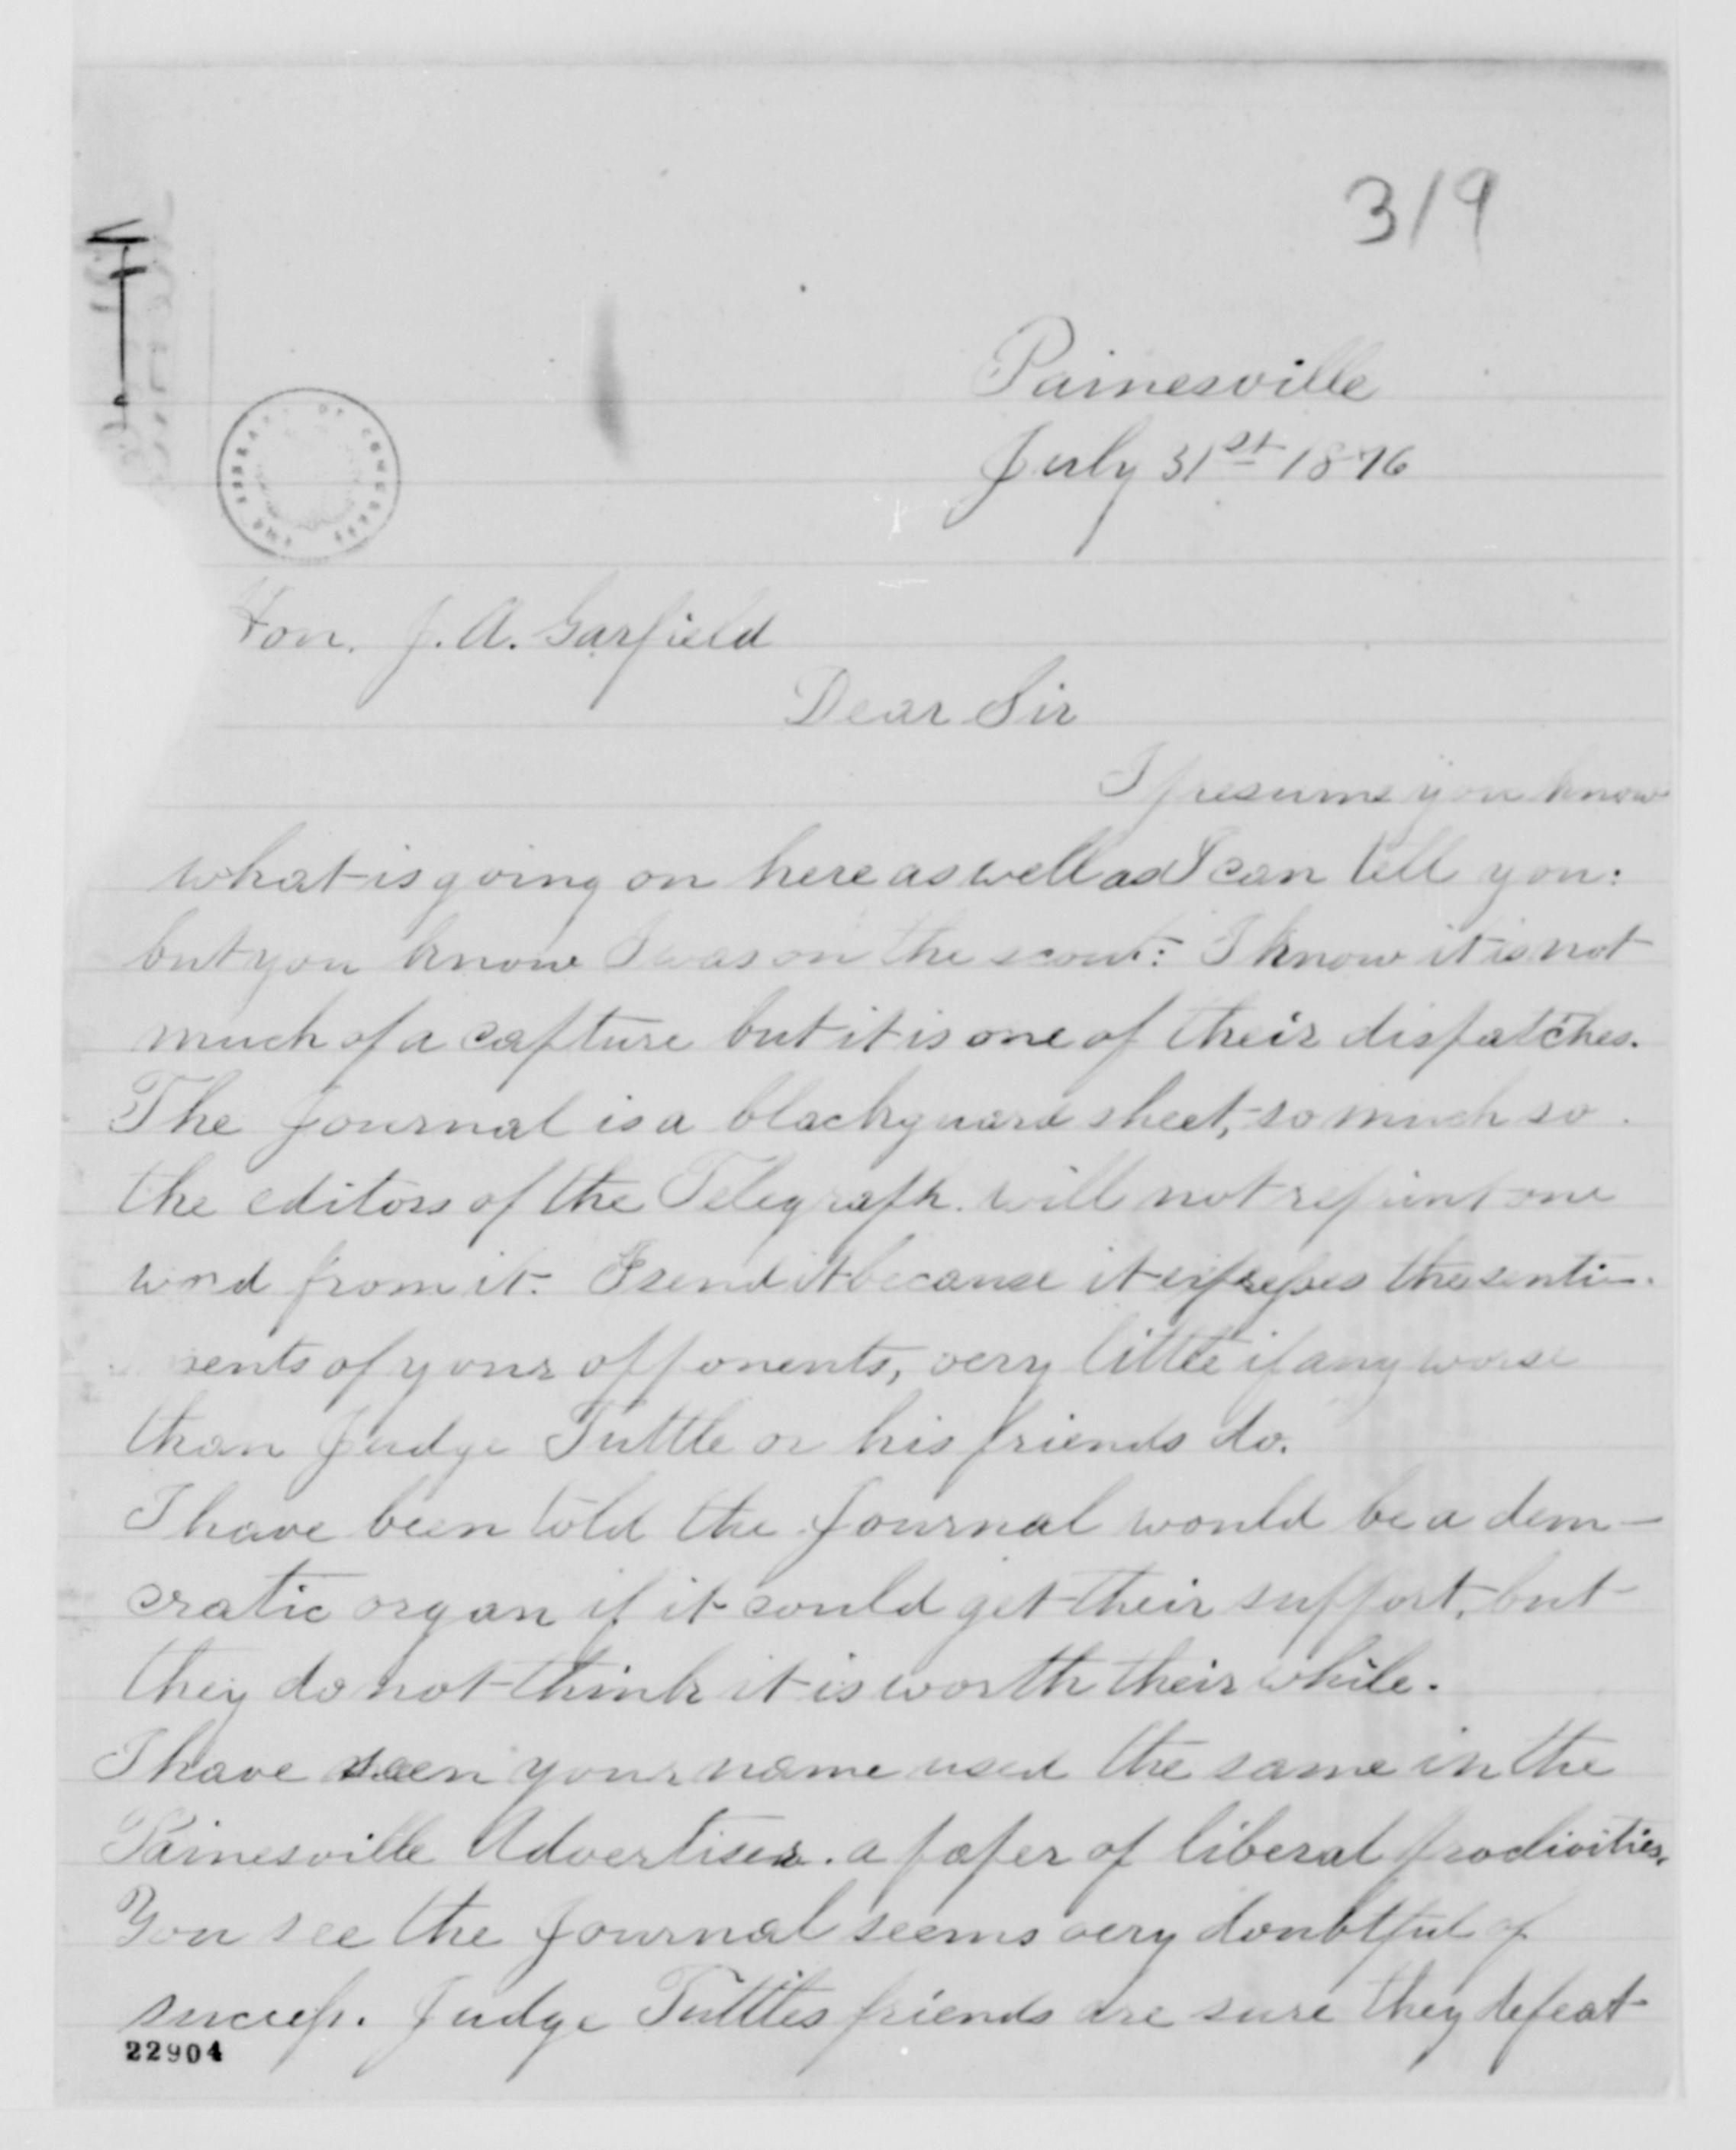 319
Painesville
July 31st 1876
THE LIBRARY OF CONGRESS
Hon. J. A. Garfield
Dear Sir
I presume you know
what is going on here as well as I can tell you:
but you know I was on the scout: I know it is not
much of a capture but it is one of their dispatches.
The Journal is a blackguard sheet, so much so
the editors of the Telegraph will not reprint one
word from it. I send it because it expresses the senti-
ments of your opponents, very little if any worse
than Judge Tuttle or his friends do.
I have been told the Journal would be a dem-
cratic organ if it could get their support, but
they do not think it is worth their while.
I have seen your name used the same in the
Painesville Advertiser. a paper of liberal proclivities.
You see the Journal seems very doubtful of
success. Judge Tuttles friends are sure they defeat
22904